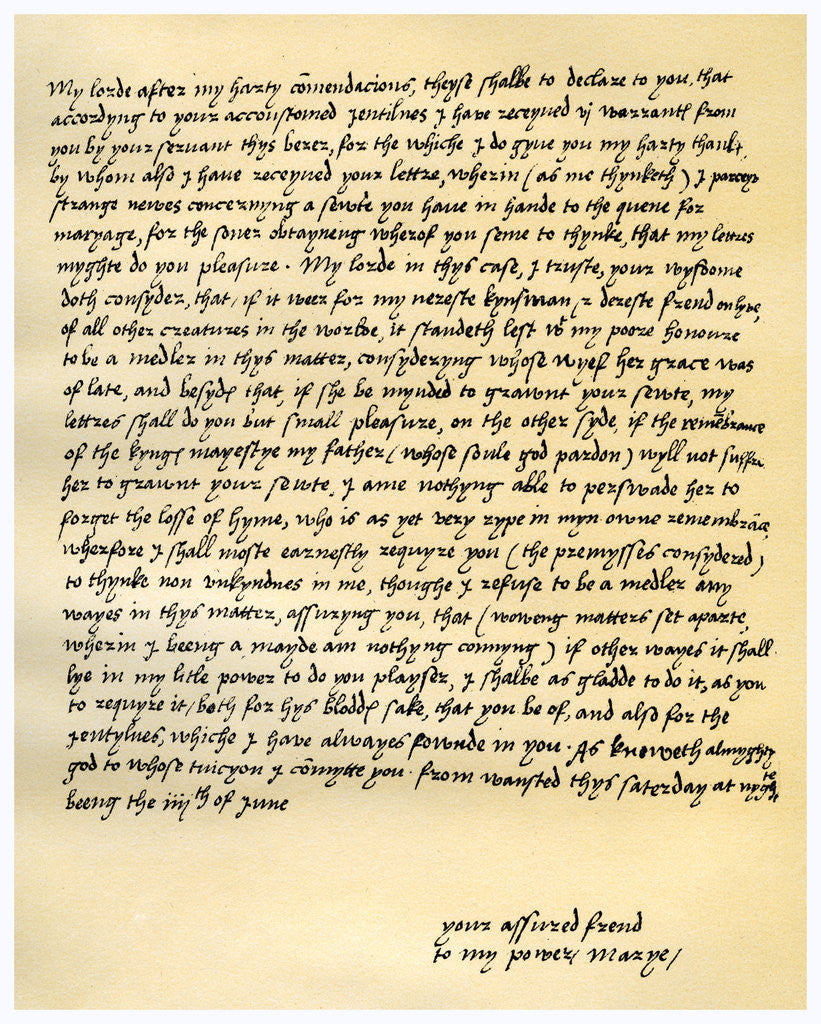 My lorde after my harty cōmendacions, theyse shalbe to declare to you, that
accordyng to your accoustomed jentilnes J have receyued vj warrants from
you by your servant thys berer, for the whiche J do gyve you my harty thanks,
by whom also J haue receyued your lettre, wherin (as me thynketh) J parceyve
strange newes concernyng a sewte you haue in hande to the quene for
maryage, for the soner obtayneng wherof you seme to thynke, that my lettres
myghte do you pleasure. My lorde in thys case, J truste, your wysdome
doth consyder, that, if it weer for my nereste kynsman, & dereste frend on lyve,
of all other creatures in the worlde, it standeth lest wt my poore honoure
to be a medler in thys matter, consyderyng whose wyef her grace was
of late, and besyds that, if she be mynded to grawnt your sewte, my
lettres shall do you but small pleasure, on the other syde, if the remēbrance
of the kyngs mayestye my father (whose soule god pardon) wyll not suffre
her to grawnt your sewte, J ame nothyng able to perswade her to
forget the losse of hyme, who is as yet very rype in myn owne remembrāce,
wherfore J shall moste earnestly requyre you (the premysses consydered)
to thynke non vnkyndnes in me, thoughe J refuse to be a medler any
wayes in thys matter, assuryng you, that (woweng matters set aparte,
wherin J beeng a mayde am nothyng connyng) if other wayes it shall
lye in my litle power to do you playser, J shalbe as gladde to do it, as you
to requyre it, both for hys blodds sake, that you be of, and also for the
jentylnes, whiche J have alwayes fownde in you. As knoweth almyghty
god to whose tuicyon J cōmytte you. from wansted thys saterday at nyghte
beeng the iiijth of June
your assured frend
to my power, Marye/